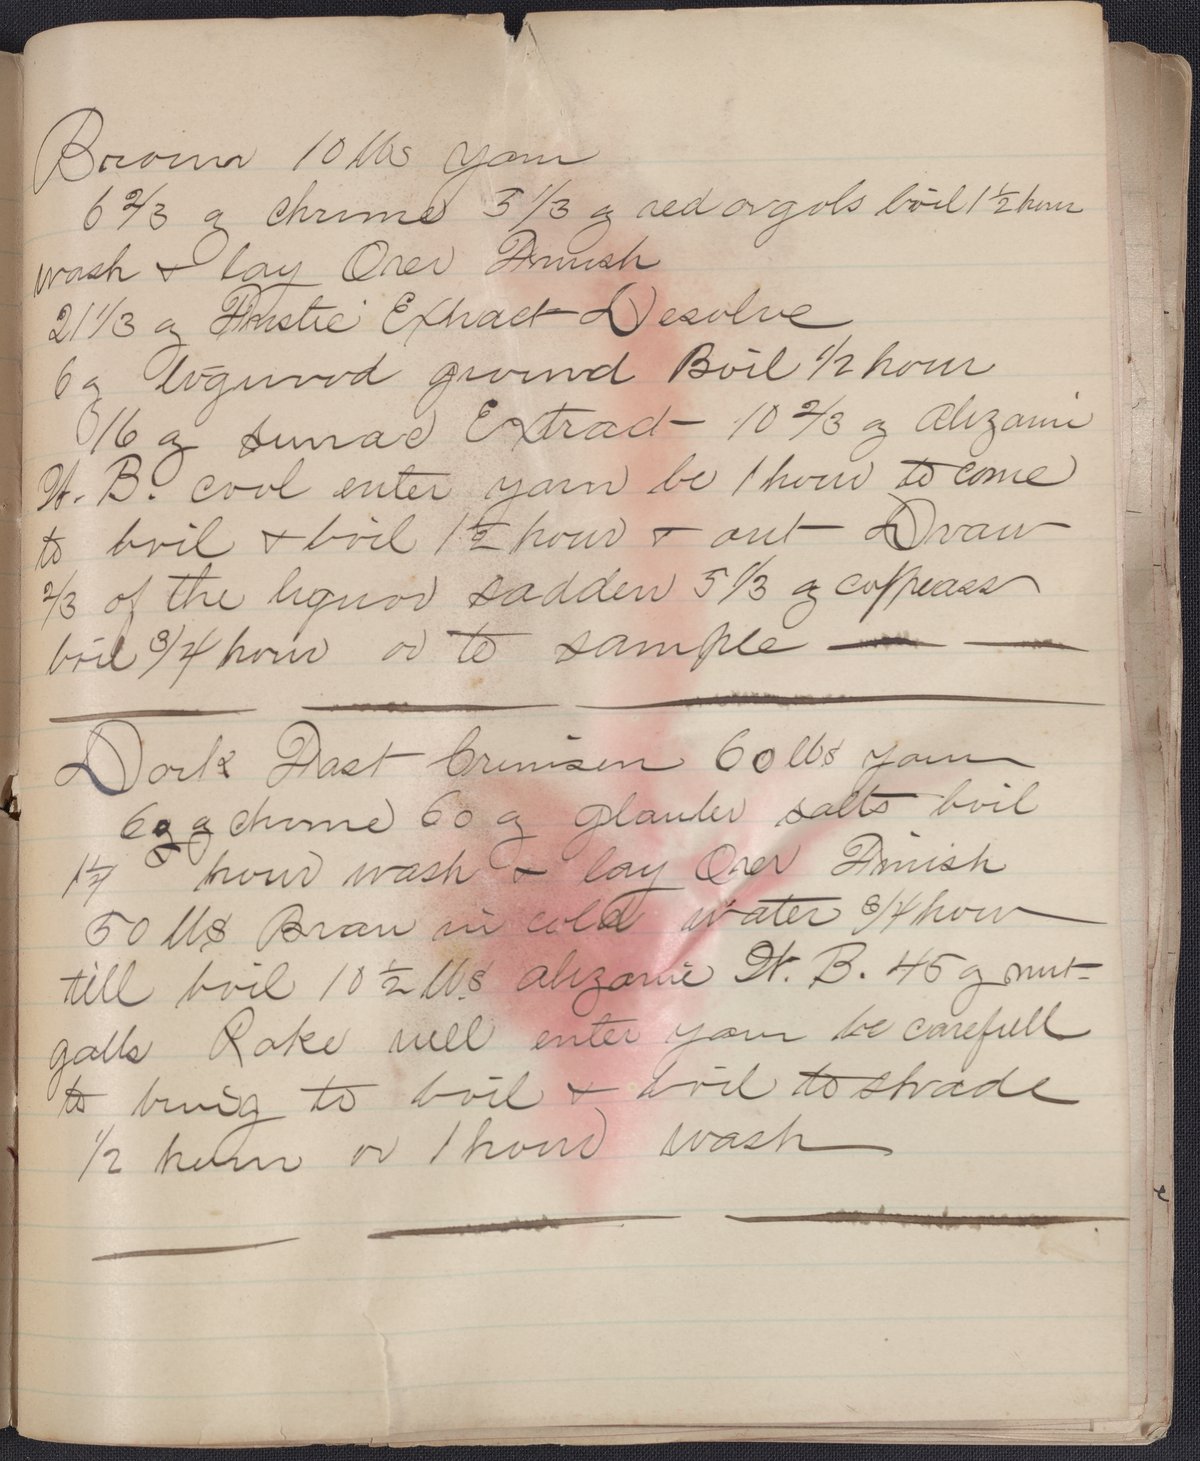 Brown 10 lbs yarn
6 2/3 g chrime 5 1/3 g red orgols boil 1 1/2 hour
wash & lay Over Finish
21 1/3 g Fustic Extract Desolve
6 g logwood ground Boil 1/2 hour
16 g sumac Extract 10 2/3 g alizarin
W. B. cool enter yarn be 1 hour to come
to boil & boil 1 1/2 hour & out Draw
2/3 of the liquor sadden 5 1/3 g coppeass
boil 3/4 hour or to sample
Dark Fast Crimson 60 lbs yarn
60 g chrome 60 g glauber salts boil
hour wash & lay Over Finish
50 lbs Bran in cold water 3/4 hour
till boil 10 1/2 lbs alizarine W. B. 45 g nut-
galls Rake well enter yarn be carefull
to bring to boil & boil to shade
1/2 hour or 1 hour wash